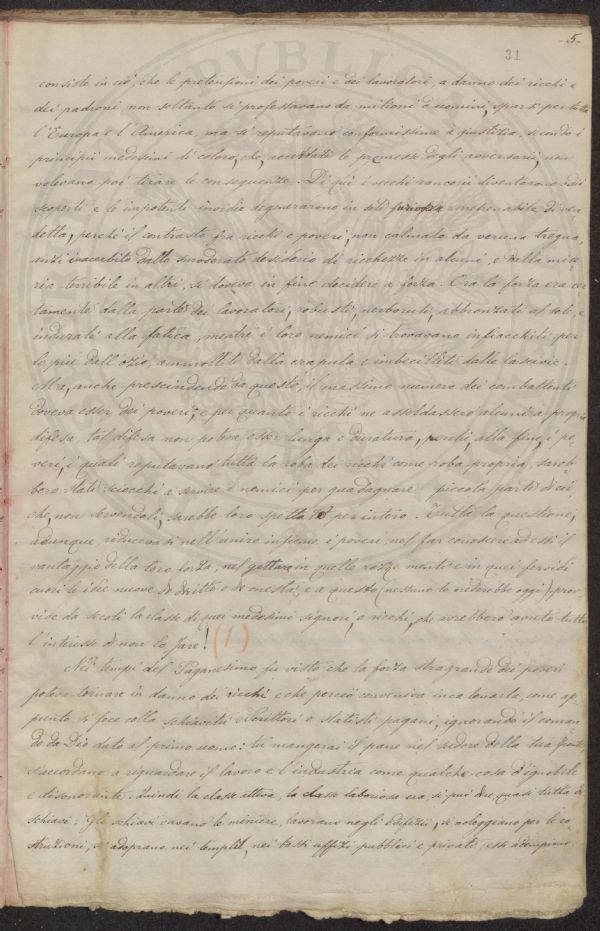 - 5 -
31
consiste in ciò, che le pretensioni dei poveri e dei lavoratori, a danno dei ricchi e
dei padroni non soltanto si professavano da milioni d'uomini, sparsi per tutta
l'Europa e l'America, ma si reputavano conformissime a giustizia, secondo i
principii medesimi di coloro, che, accettate le premesse dagli avversarii, non
volevano poi tirare le conseguenze. Di qui i vecchi rancori diventarono odii
scoperti e le impotenti invidie degenerarono in sete furiosa di ven
detta, perchè il contrasto fra ricchi e poveri, non calmato da veruna tregua,
anzi inacerbito dallo smoderato desiderio di ricchezze in alcuni, e dalla mise
ria terribile in altri, si doveva in fine decidere a forza. Ora la forza era cer
tamente dalla parte dei lavoratori, robusti, nerboruti, abbronzati al sole, e
indurati alla fatica, mentre i loro nemici si trovavano infiacchiti per
lo più dall'ozio, ammolliti dalla crapula e imbecilliti dalle lascivie.
Ma, anche prescindendo da questo, il massimo numero dei combattenti
doveva esser dei poveri; e per quanto i ricchi ne assoldassero alcuni a propria
difesa, tal difesa non poteva esser lunga e duratura, perchè, alla fine, i po
veri, i quali reputavano tutta la roba dei ricchi come roba propria, sareb
bero stati sciocchi a servire i nemici per guadagnare piccola parte di ciò,
che, non servendoli, sarebbe loro spettato per intero. Tutta la questione,
adunque, riducevasi nell'unire insieme i poveri nel far conoscere ad essi il
vantaggio della loro forza, nel gettare in quelle rozze menti e in quei fervidi
cuori le idee nuove di dritto e di onestà; e a questo (nessuno lo crederebbe oggi) prov
vide da secoli la classe di quei medesimi signori, o ricchi, che avrebbero avuto tutto
l'interesse di non lo fare! (1)
Nei tempi del Paganesimo fu visto che la forza stragrande dei poveri
poteva tornare in danno dei ricchi e che perciò conveniva incatenarla, come ap
punto si fece colla schiavitù. Scrittori e statisti pagani, ignorando il coman
do da Dio dato al primo uomo: tu mangerai il pane nel sudore della tua fronte,
s'accordano a riguardare il lavoro e l'industria come qualche cosa d'ignobile
e disonorante. Quindi la classe attiva, la classe laboriosa era, si può dire quasi tutta di
schiavi: Gli schiavi cavano le miniere, lavorano negli edifizii, si noleggiano per le co
struzioni, si adoprano nei templi, nei bassi uffizi pubblici e privati: essi adempiono